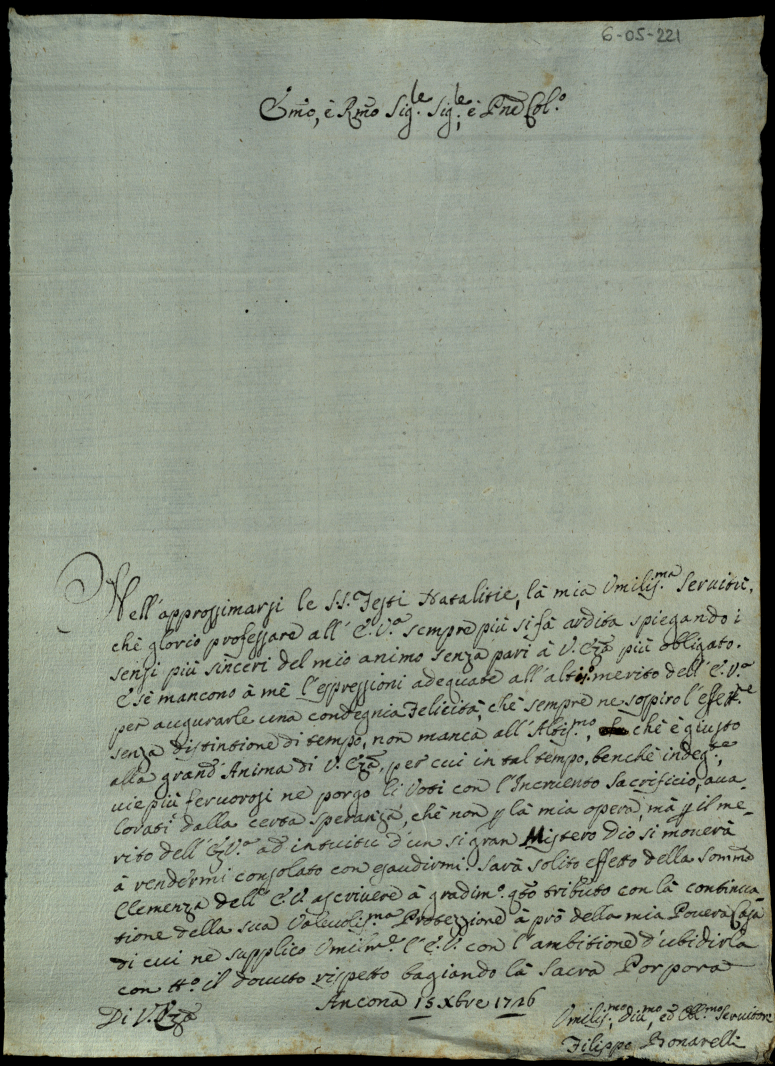 6-05-221
Emo, è Rmo Sig.le Sig.le, è Pne Col.o
Nell'approssimarsi le SS. Feste Natalitie, là mia Umiliss.ma Servitù,
chè glorio professare all'E.V.a sempre più si fà ardita spiegando i
sensi più sinceri del mio animo senza pari à V. Eza più obligato.
E sè mancono à mè l'espressioni adequate all'altis.o merito dell'E.V.a
per augurarle una condegnia Felicità, chè sempre ne sospiro l'effett.e
senza distintione di tempo, non mancà all'Altis.mo, chè è giusto
alla grand'Anima di V. Eza, per cui in tal tempo, benchè indeg.te,
vie più fervorosi nè porgo li Voti con l'Incruento Sacrificio, ava-
lorati dalla certa speranza, chè non p là mia opera, mà p il me-
rito dell'Ez.V.a ad intuitù d'un si gran Mistero Dio si moverà
à rendermi consolato con esaudirmi. Sarà solito effetto della Somma
Clemenza dell'E.V. ascrivere à gradim.o qto tributo con là continua
tione della sua Valevolis.ma Protezzione à prò della mia Povera Casa
di cui nè supplico Umilm.e l'E.V. con l'ambitione d'ubidirla
con tt.o il dovuto rispetto bagiando là Sacra Porpora
Di V. Eza
Ancona 15 Xbre 1726
Umilis.mo, divo.mo, ed Obl.mo Servitore
Filippo Bonarelli